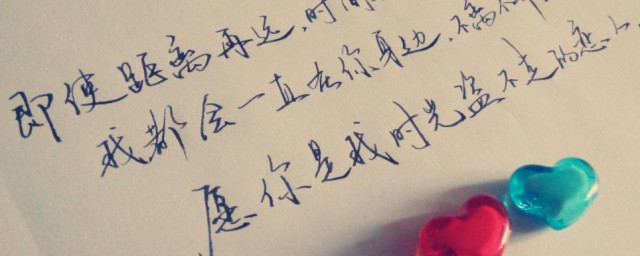 即使距离再远，时间
我都会一直在你身边，不离不
愿你是我时光盗不走的恋人